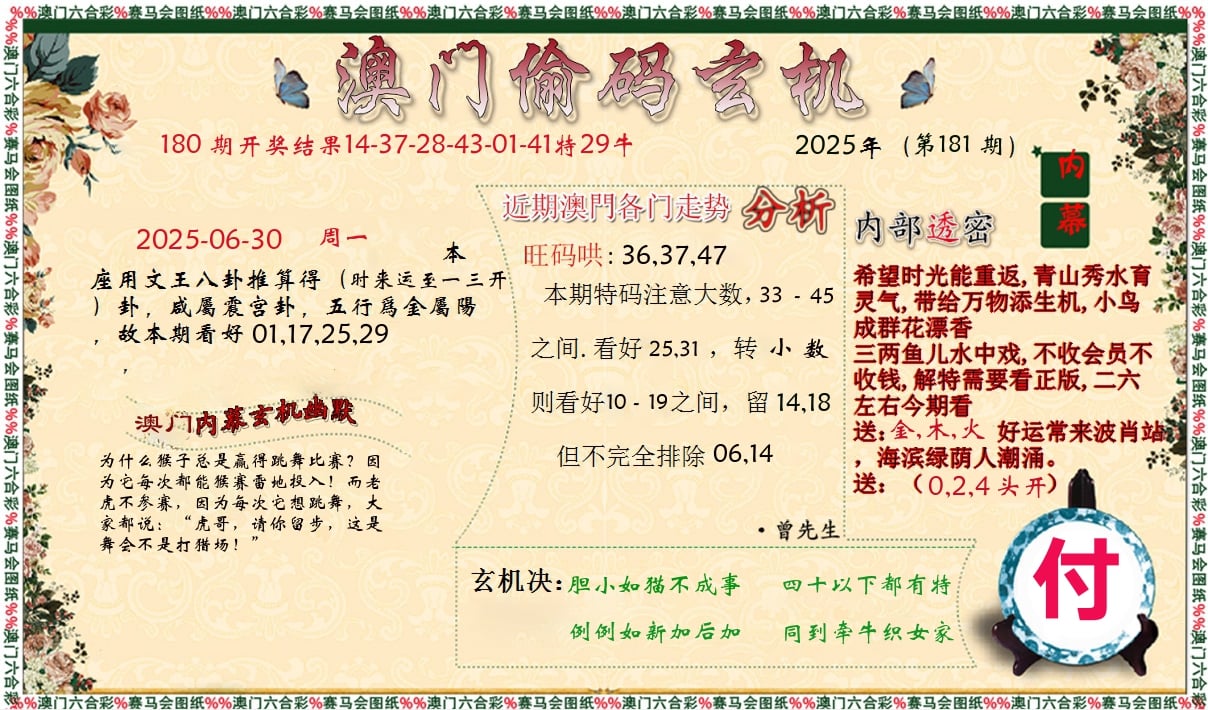 %%澳门六合彩%赛马会图纸%%澳门六合彩%赛马会图纸%%澳门六合彩%赛马会图纸%%澳门六合彩%赛马会图纸%%澳门六合彩%赛马会图纸%%澳门六合彩%赛马会图纸%%
澳门偷码玄机
180 期开奖结果14-37-28-43-01-41特29牛
2025年（第181 期）
内
幕
2025-06-30 周一
本
座用文王八卦推算得（时来运至一三开
）卦，咸屬震宫卦，五行爲金屬陽
，故本期看好 01,17,25,29
，
澳门内幕玄机幽默
为什么猴子总是赢得跳舞比赛？因
为它每次都能猴赛雷地投入！而老
虎不参赛，因为每次它想跳舞，大
家都说：“虎哥，请你留步，这是
舞会不是打猎场！”
近期澳門各门走势 分析
旺码哄: 36,37,47
本期特码注意大数, 33 - 45
之间. 看好 25,31 ，转 小 数
则看好10 - 19之间，留 14,18
但不完全排除 06,14
·曾先生
内部透密
希望时光能重返, 青山秀水育
灵气, 带给万物添生机, 小鸟
成群花漂香
三两鱼儿水中戏, 不收会员不
收钱, 解特需要看正版, 二六
左右今期看
送: 金, 木, 火 好运常来波肖站
，海滨绿荫人潮涌。
送：（0,2,4 头开）
付
玄机决: 胆小如猫不成事 四十以下都有特
例例如新加后加 同到牵牛织女家
%%澳门六合彩%赛马会图纸%%澳门六合彩%赛马会图纸%%澳门六合彩%赛马会图纸%%澳门六合彩%赛马会图纸%%澳门六合彩%赛马会图纸%%澳门六合彩%赛马会图纸%%